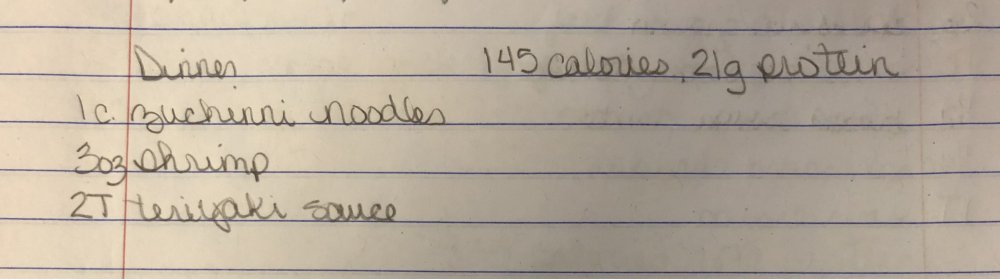 Dinner 145 calories, 21g protein
1c. zuchinni noodles
3oz shrimp
2T teriyaki sauce